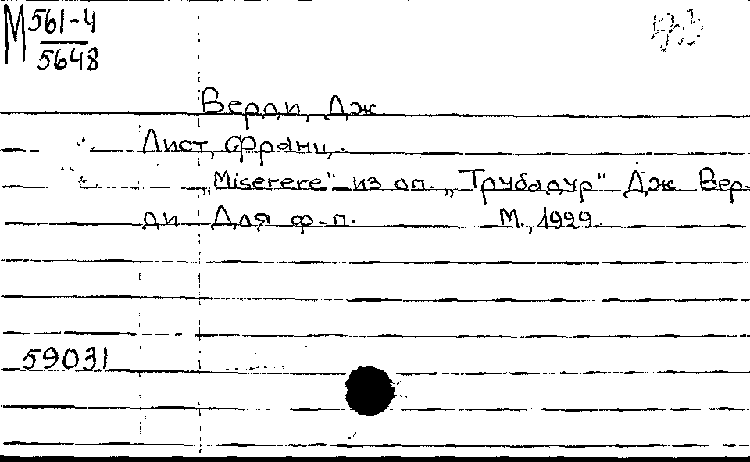 М 561-4
5648
Верди, Дж
Лист, Франц.
„Miserere" из оп. „Трубадур" Дж Вер-
ди Для ф-п. М., 1999.
59031